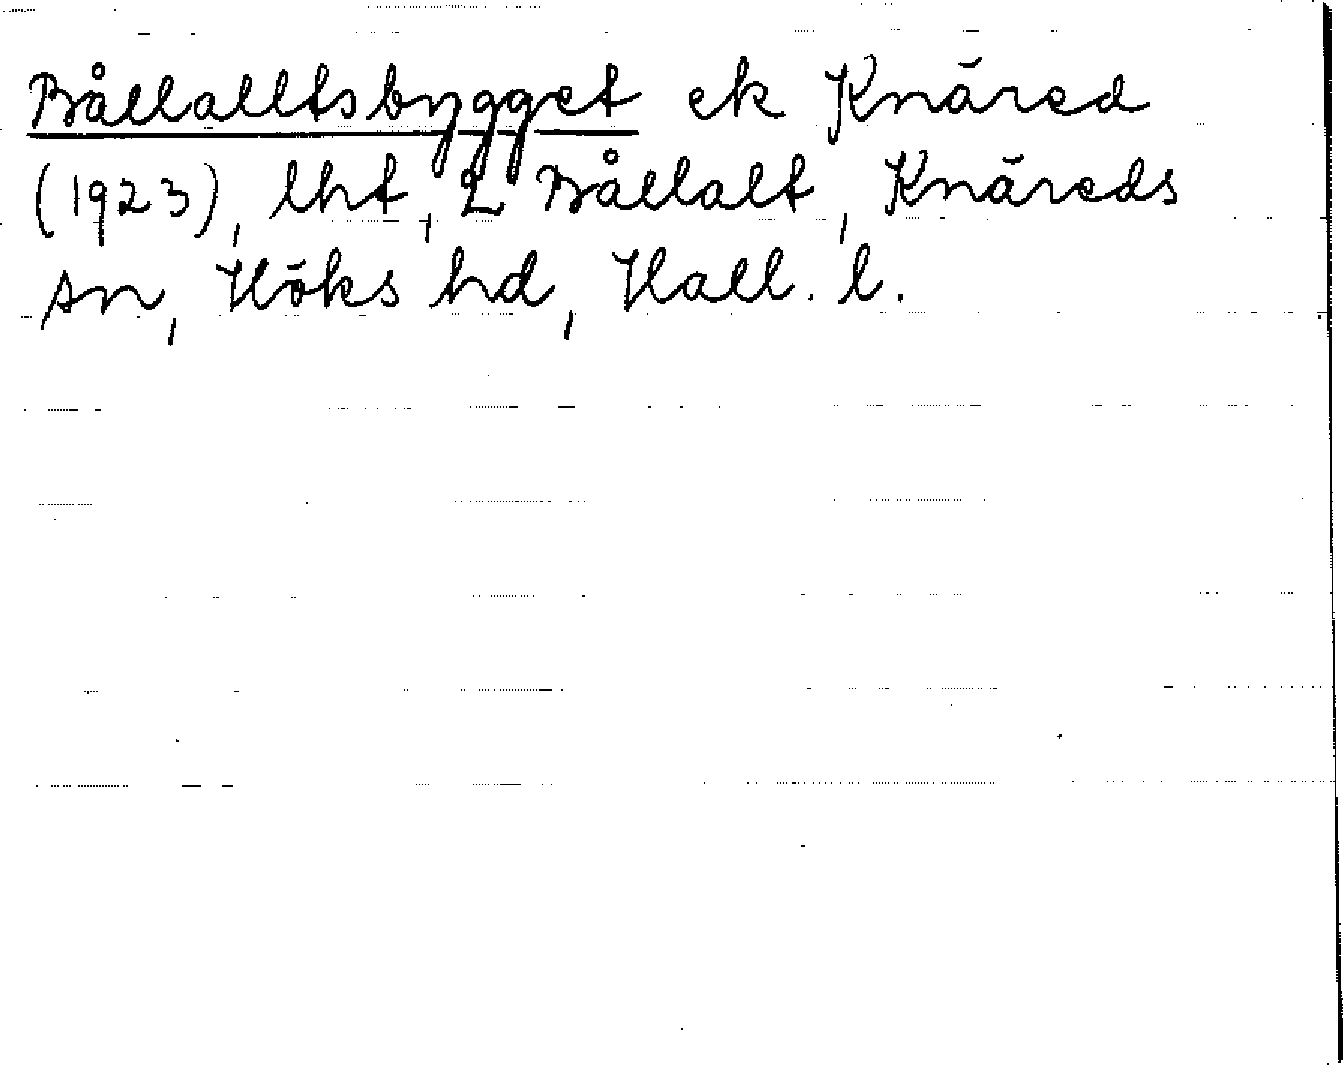 Bållalltsbygget ek Knäred
(1923), lht, L Bållalt, Knäreds
sn, Höks hd, Hall. l.